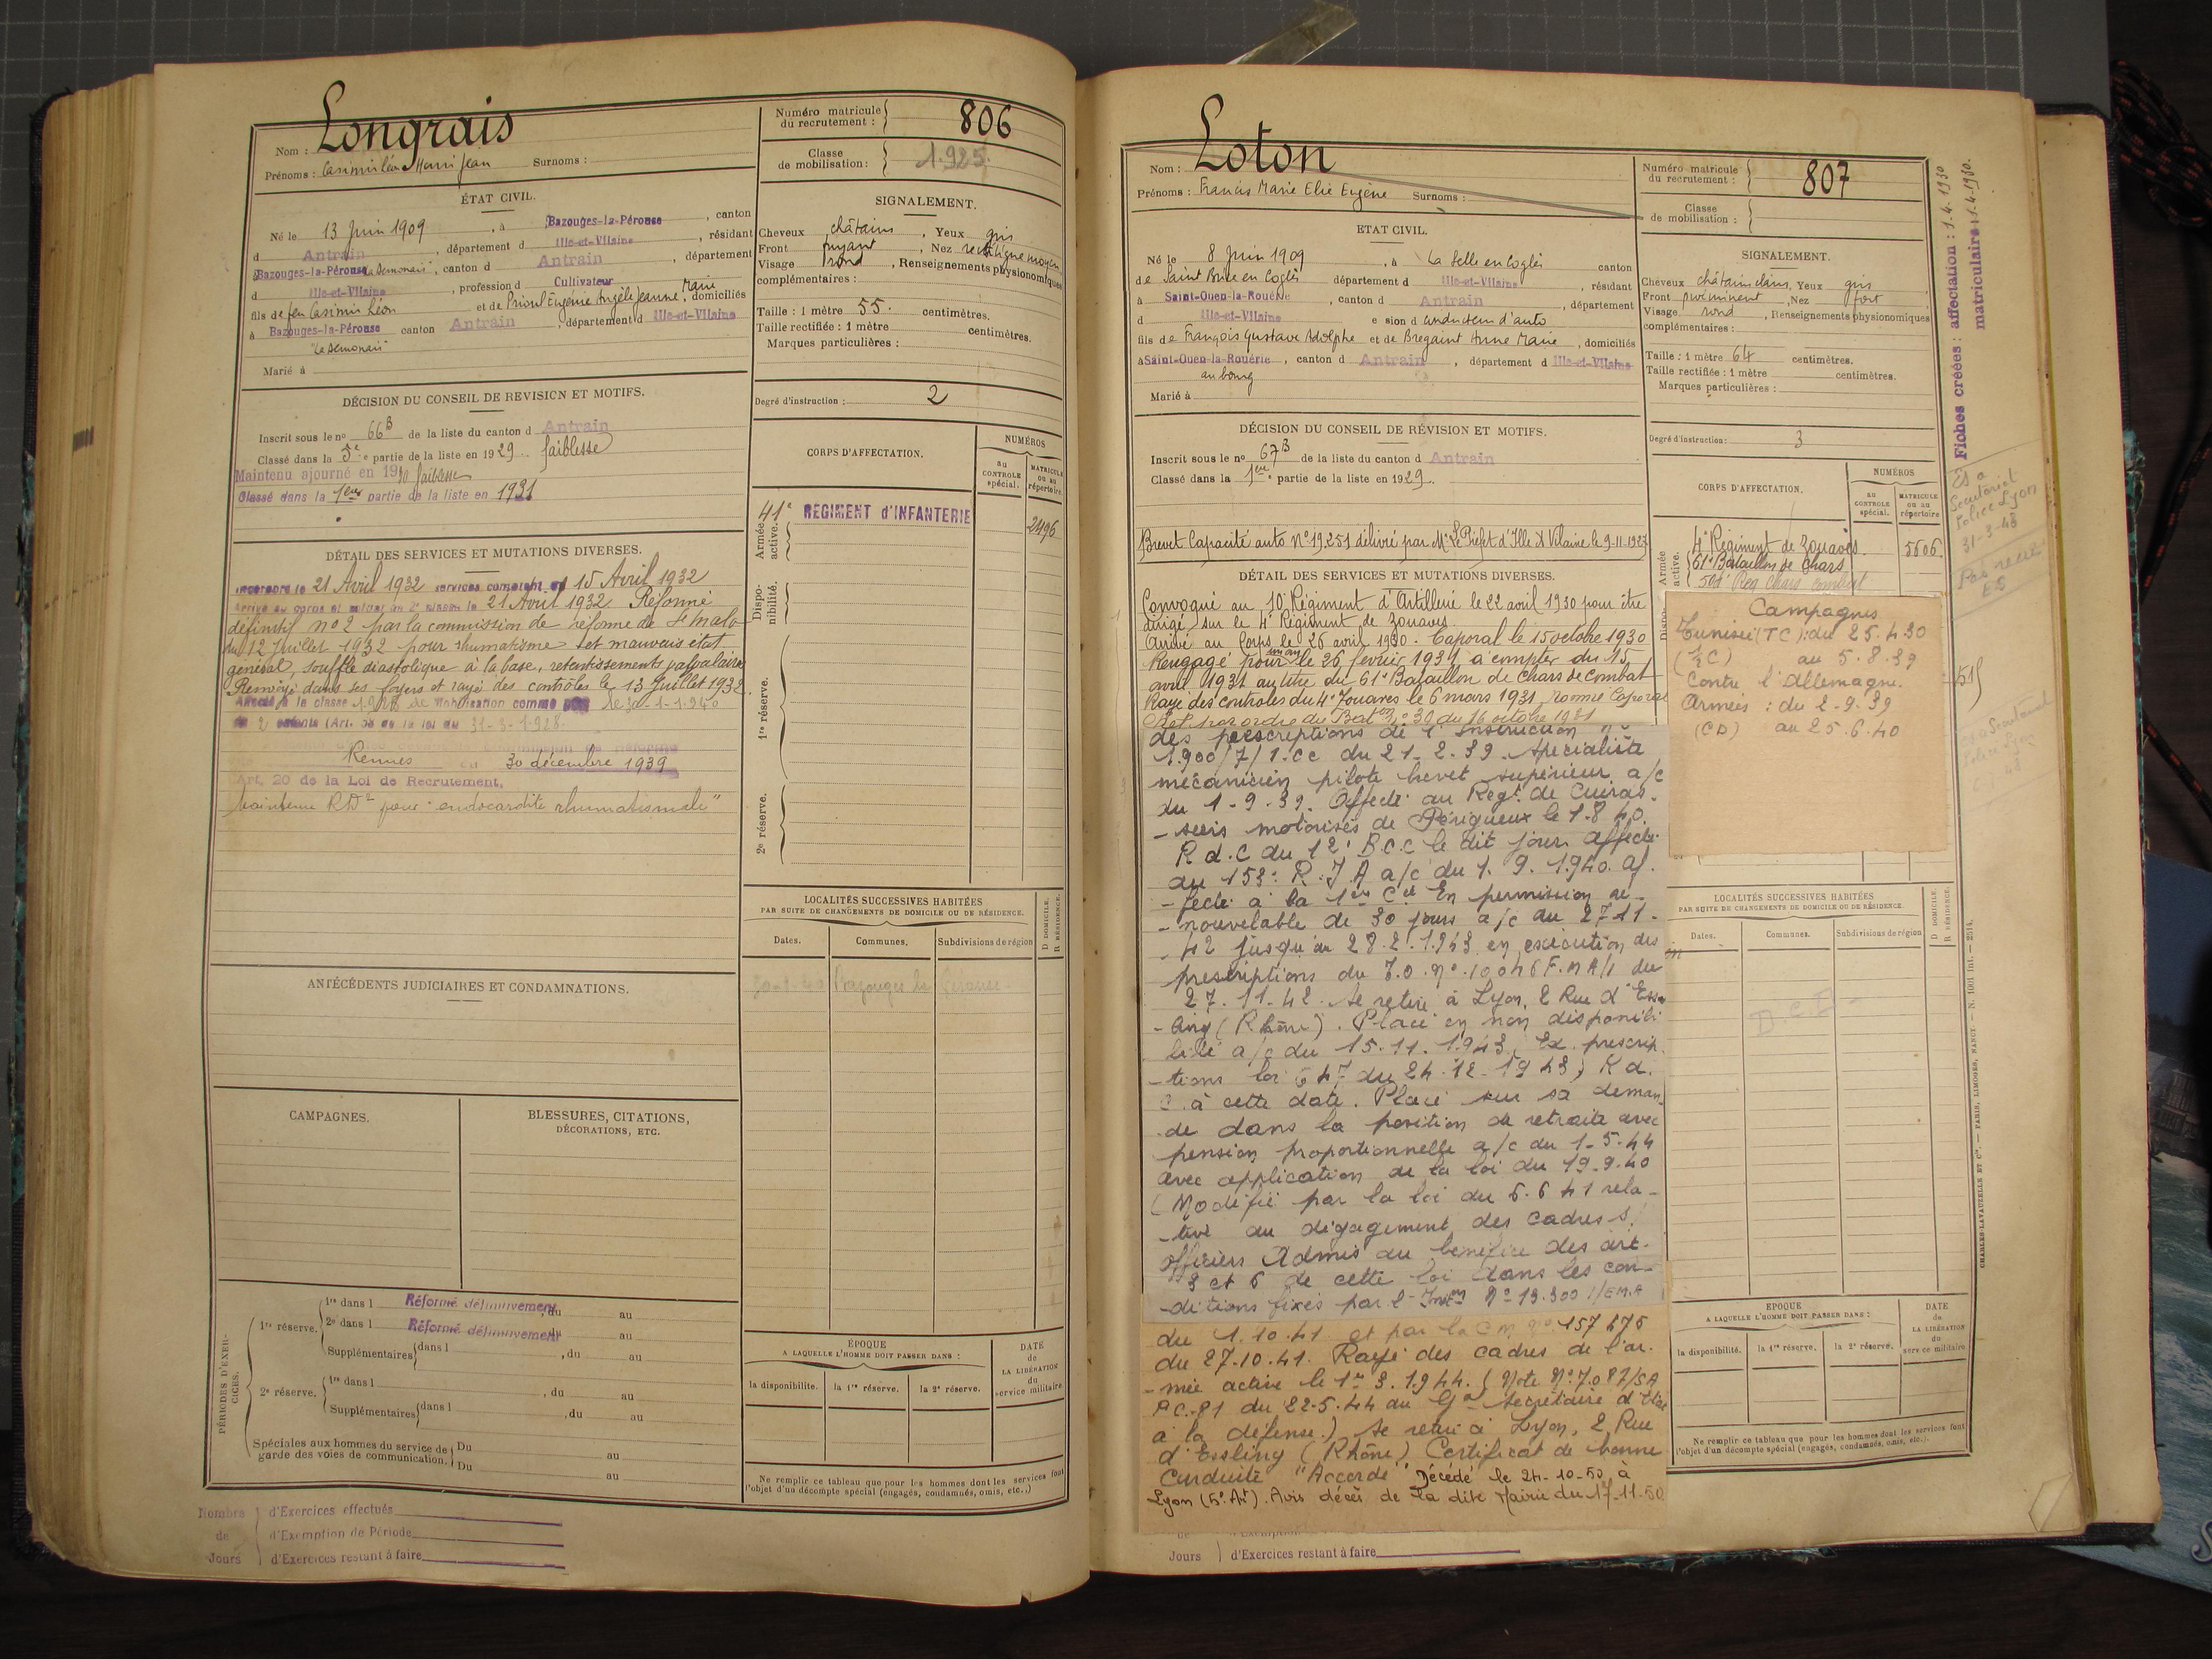 Nom : Longrais
Prénoms : Casimir Léon Henri Jean Surnoms :
Numéro matricule du recrutement : 806
Classe de mobilisation : 1.925.
ÉTAT CIVIL.
Né le 13 Juin 1909, à Bazouges-la-Pérouse, canton
d Antrain, département d Ille-et-Vilaine, résidant
Bazouges-la-Pérouse "La Demonais", canton d Antrain, département
d Ille-et-Vilaine, profession d Cultivateur
fils de feu Casimir Léon et de Prioul Eugénie Angèle Jeanne Marie, domiciliés
à Bazouges-la-Pérouse canton Antrain, département d Ille-et-Vilaine
"La Demonais"
Marié à
SIGNALEMENT.
Cheveux châtains, Yeux gris
Front fuyant, Nez rectiligne moyen
Visage rond, Renseignements physionomiques
complémentaires :
Taille : 1 mètre 55. centimètres.
Taille rectifiée : 1 mètre centimètres.
Marques particulières :
Degré d'instruction : 2
DÉCISION DU CONSEIL DE REVISION ET MOTIFS.
Inscrit sous le no 66B de la liste du canton d Antrain
Classé dans la 5e partie de la liste en 1929. faiblesse
Maintenu ajourné en 1930 faiblesse
Classé dans la 1ère partie de la liste en 1931
DÉTAIL DES SERVICES ET MUTATIONS DIVERSES.
Incorporé le 21 Avril 1932 services comptent du 15 Avril 1932
Arrivé au corps et soldat de 2e classe le 21 Avril 1932 Réformé
définitif no 2 par la commission de réforme de St Malo
du 12 Juillet 1932 pour rhumatisme et mauvais état
général, souffle diastolique à la base, retentissements valvulaires
Renvoyé dans ses foyers et rayé des contrôles le 13 Juillet 1932
Rennes du 30 décembre 1939
Art. 20 de la Loi de Recrutement.
Maintenu RD2 pour "endocardite rhumatismale"
CORPS D'AFFECTATION.
NUMÉROS
AU CONTROLE spécial.
MATRICULE OU AU répertoire
Armée active.
41e REGIMENT d'INFANTERIE 2496
Disponibilité.
1re réserve.
2e réserve.
ANTÉCÉDENTS JUDICIAIRES ET CONDAMNATIONS.
LOCALITÉS SUCCESSIVES HABITÉES
PAR SUITE DE CHANGEMENTS DE DOMICILE OU DE RÉSIDENCE.
D DOMICILE. R RÉSIDENCE.
Dates. Communes. Subdivisions de région
Bazouges la Pérouse
CAMPAGNES.
BLESSURES, CITATIONS,
DÉCORATIONS, ETC.
PÉRIODES D'EXERCICES.
1re réserve. 1re dans l Réformé définitivement, du au
2e dans l Réformé définitivement du au
Supplémentaires dans l , du au
2e réserve. 1re dans l , du au
Supplémentaires dans l , du au
Spéciales aux hommes du service de garde des voies de communication. Du au
Du au
ÉPOQUE
A LAQUELLE L'HOMME DOIT PASSER DANS :
la disponibilité. la 1re réserve. la 2e réserve.
DATE DE LA LIBÉRATION du service militaire
Ne remplir ce tableau que pour les hommes dont les services font
l'objet d'un décompte spécial (engagés, condamnés, omis, etc..)
Nombre de Jours
d'Exercices effectués
d'Exemption de Période
d'Exercices restant à faire
Nom : Loton
Prénoms : Francis Marie Elie Eugène Surnoms :
Numéro matricule du recrutement : 807
Classe de mobilisation :
ETAT CIVIL.
Né le 8 Juin 1909, à La Selle en Coglès canton
de Saint Brice en Coglès département d Ille-et-Vilaine, résidant
à Saint-Ouen-la-Rouërie, canton d Antrain, département
d Ille-et-Vilaine e sion d conducteur d'auto
fils de François Gustave Adolphe et de Bregaint Anne Marie, domiciliés
à Saint-Ouen-la-Rouërie, canton d Antrain, département d Ille-et-Vilaine
au bourg
Marié à
SIGNALEMENT.
Cheveux châtain clairs, Yeux gris
Front proéminent, Nez fort
Visage rond, Renseignements physionomiques
complémentaires :
Taille : 1 mètre 64 centimètres.
Taille rectifiée : 1 mètre centimètres.
Marques particulières :
Degré d'instruction : 3
DÉCISION DU CONSEIL DE RÉVISION ET MOTIFS.
Inscrit sous le no 67B de la liste du canton d Antrain
Classé dans la 1ère partie de la liste en 1929.
Brevet Capacité auto No 19.251 délivré par Mr Le Préfet d'Ille & Vilaine le 9-11-1927
DÉTAIL DES SERVICES ET MUTATIONS DIVERSES.
Convoqué au 10e Régiment d'Artillerie le 22 avril 1930 pour être
dirigé sur le 4e Régiment de Zouaves.
Arrivé au Corps le 26 avril 1930. Caporal le 15 octobre 1930
Rengagé pour un an le 26 février 1931 à compter du 15
avril 1931 au titre du 61e Bataillon de Chars de combat
Rayé des contrôles du 4e Zouaves le 6 mars 1931, nommé Caporal
Chef par ordre du Baton no 30 du 16 octobre 1931
des prescriptions de l'Instruction n°
1.900/7/1.cc du 21-2-39. Spécialiste
mécanicien pilote brevet supérieur a/c
du 1-9-39. Affecté au Regt de Cuiras-
-siers motorisés de Périgueux le 1-8 40.
R d.C du 12e B.C.C le dit jour. affecté
au 153e R.I.A a/c du 1.9.1940. af-
-fecté à la 1ère Cie En permission re-
-nouvelable de 30 jours a/c du 27-11-
-42 jusqu'au 28.2.1943 en exécution des
prescriptions du T.O. No
27.11.42. Se retire à Lyon, 2 Rue d'Ess-
-ling (Rhône). Placé en non disponibi-
lité a/c du 15.11.1943, Ex. prescrip-
-tions loi 647 du 24-12-1943, R d.
C. à cette date. Placé sur sa deman-
-de dans la position de retraite avec
pension proportionnelle a/c du 1-5-44
avec application de la loi du 19-9-40
(Modifié par la loi du 6.6 41 rela-
-tive au dégagement des cadres s/
officiers Admis au bénéfice des art.
3 et 6 de cette loi dans les con-
-ditions fixés par l'Inston No 13.300 1/EMA
du 1.10.41 et par la C M no 157 475
du 27.10.41. Rayé des cadres de l'ar-
-mée active le 1er 3.1944. (Note No 7.087/SA
PC.81 du 22-5-44 au Gal Secrétaire d'Etat
à la défense.) Se retire à Lyon, 2 Rue
d'Essling (Rhône) Certificat de bonne
Conduite "Accordé" Décédé le 24-10-50 à
Lyon (5e Art). Avis décès de la dite Mairie du 17-11-50
CORPS D'AFFECTATION.
NUMÉROS
AU CONTROLE spécial.
MATRICULE OU AU répertoire
Armée active.
4e Régiment de Zouaves. 5606
61e Bataillon de Chars
Reg Chars combat
Campagnes
Tunisie (TC) : du 25.4.30
(1/2 C) au 5.8.39
Contre l'Allemagne.
Armées : du 2-9-39
(CD) au 25.6.40
LOCALITÉS SUCCESSIVES HABITÉES
PAR SUITE DE CHANGEMENTS DE DOMICILE OU DE RÉSIDENCE.
D DOMICILE. R RÉSIDENCE.
Dates. Communes. Subdivisions de région
EPOQUE
A LAQUELLE L'HOMME DOIT PASSER DANS :
la disponibilité. la 1re réserve. la 2e réserve.
DATE DE LA LIBÉRATION du service militaire
Ne remplir ce tableau que pour les hommes dont les services font
l'objet d'un décompte spécial (engagés, condamnés, omis, etc.).
Jours d'Exercices restant à faire
Fiches créées : affectation : 1.4.1930
matriculaire : 1-4-1930.
Secrétariat
Police Lyon
31-3-48
CHARLES-LAVAUZELLE ET Cie. — PARIS, LIMOGES, NANCY — N. 1001 Int. — 2514.